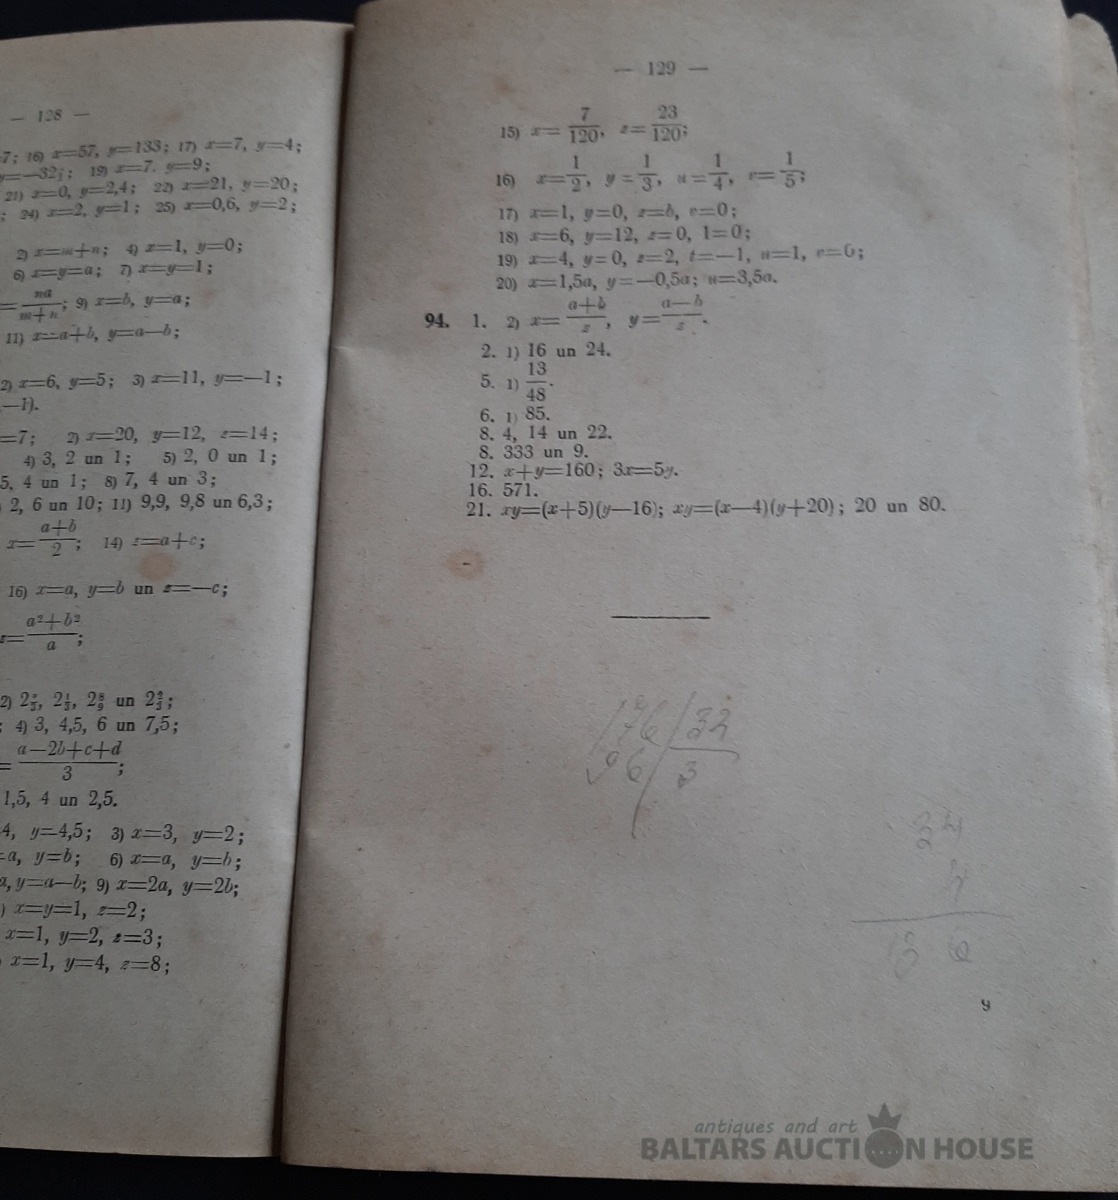 — 128 —
7; 16) x=57, y=133; 17) x=7, y=4;
y=—32; 19) x=7. y=9;
21) x=0, y=2,4; 22) x=21, y=20;
; 24) x=2, y=1; 25) x=0,6, y=2;
2) x=m+n; 4) x=1, y=0;
6) x=y=a; 7) x=y=1;
= na/m+n; 9) x=b, y=a;
11) x=a+b, y=a—b;
2) x=6, y=5; 3) x=11, y=—1;
—1).
=7; 2) x=20, y=12, z=14;
4) 3, 2 un 1; 5) 2, 0 un 1;
5, 4 un 1; 8) 7, 4 un 3;
2, 6 un 10; 11) 9,9, 9,8 un 6,3;
x= a+b/2; 14) z=a+c;
16) x=a, y=b un z=—c;
z= a²+b²/a;
2) un
; 4) 3, 4,5, 6 un 7,5;
= a—2b+c+d/3;
1,5, 4 un 2,5.
4, y=4,5; 3) x=3, y=2;
=a, y=b; 6) x=a, y=b;
a, y=a—b; 9) x=2a, y=2b;
) x=y=1, z=2;
x=1, y=2, z=3;
x=1, y=4, z=8;
— 129 —
15) x= 7/120, z= 23/120;
16) x= 1/2, y= 1/3, u= 1/4, v= 1/5;
17) x=1, y=0, z=b, v=0;
18) x=6, y=12, z=0, 1=0;
19) x=4, y=0, z=2, t=—1, u=1, v=0;
20) x=1,5a, y=—0,5a; u=3,5a.
94. 1. 2) x= a+b/s, y= a—b/s.
2. 1) 16 un 24.
5. 1) 13/48.
6. 1) 85.
8. 4, 14 un 22.
8. 333 un 9.
12. x+y=160; 3x=5y.
16. 571.
21. xy=(x+5)(y—16); xy=(x—4)(y+20); 20 un 80.
176 32
96 3
34
4
136
9
antiques and art
BALTARS AUCTION HOUSE